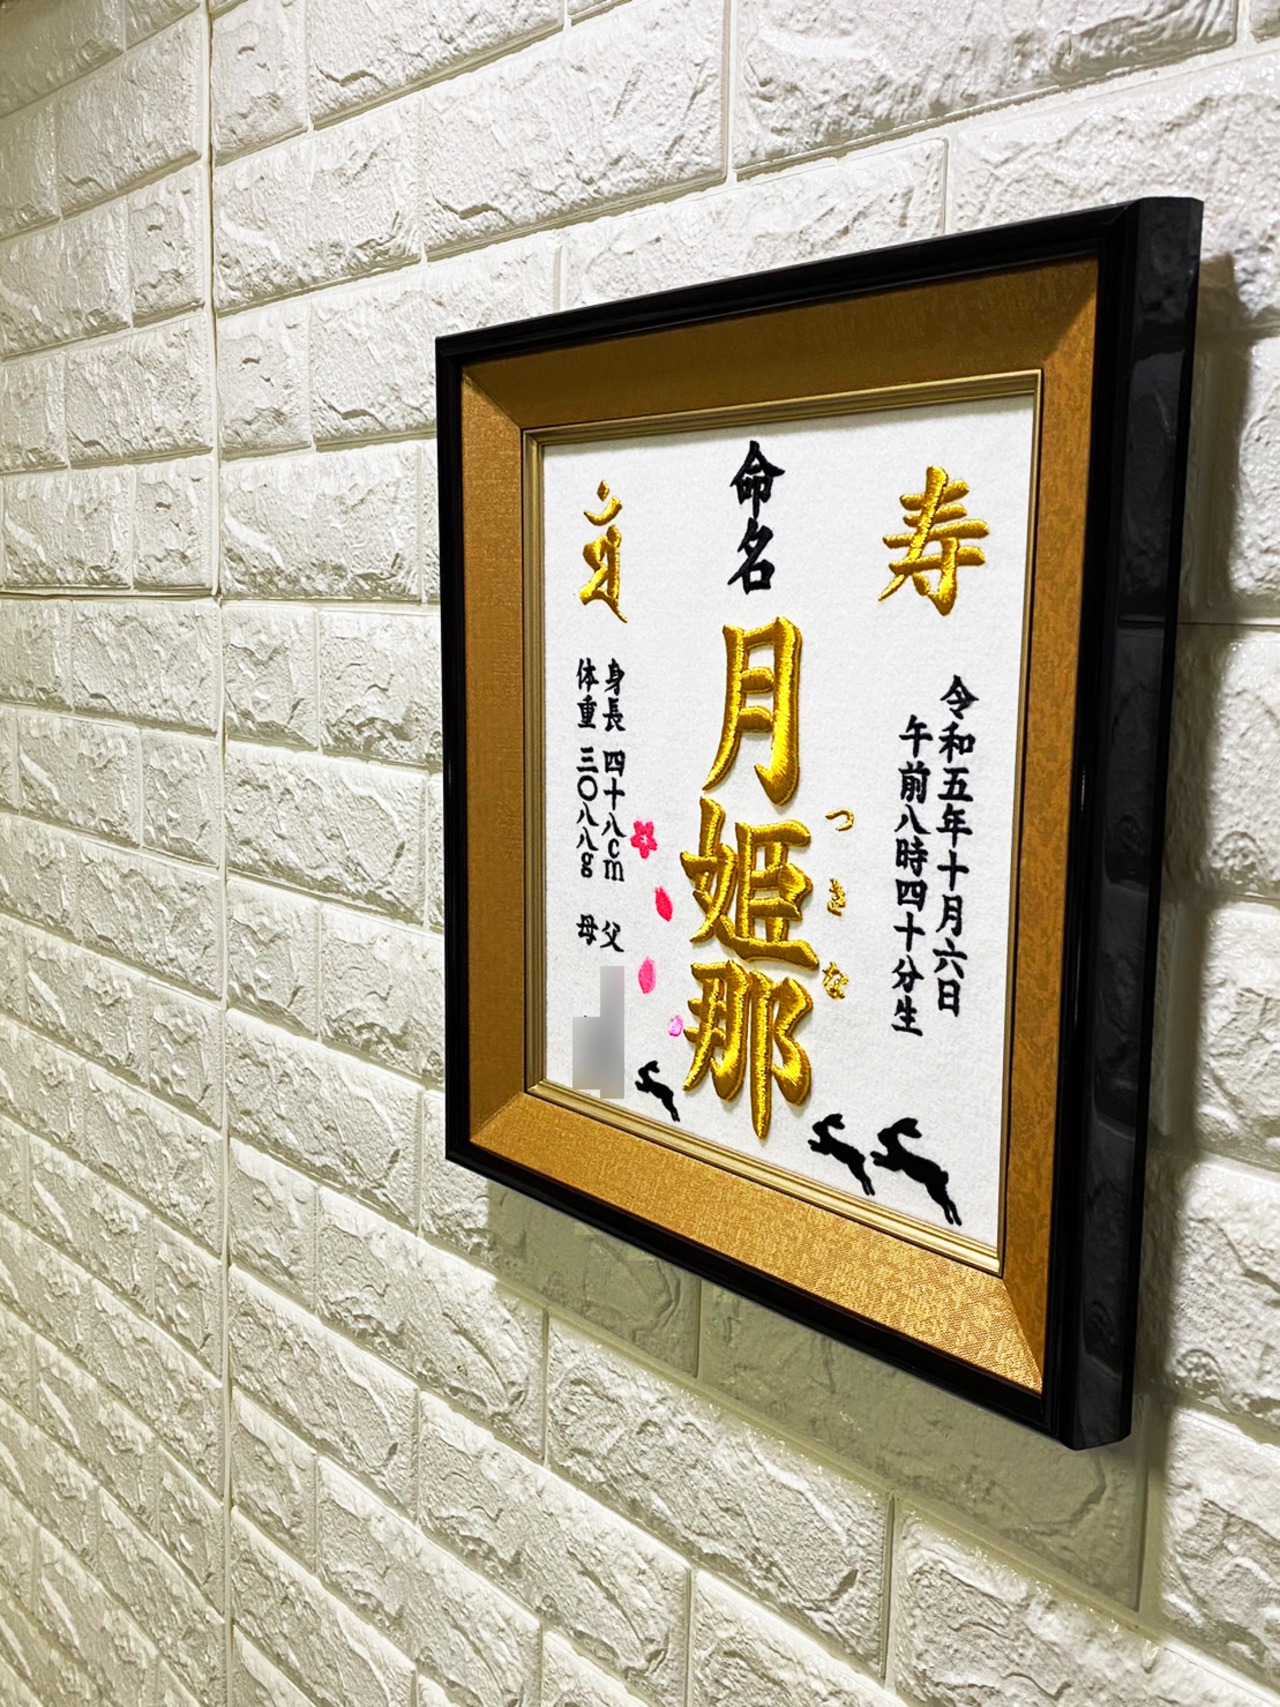 寿
令和五年十月六日
午前八時四十分生
命名
月姫那
つきな
身長 四十八cm
体重 三〇八八g
父
母